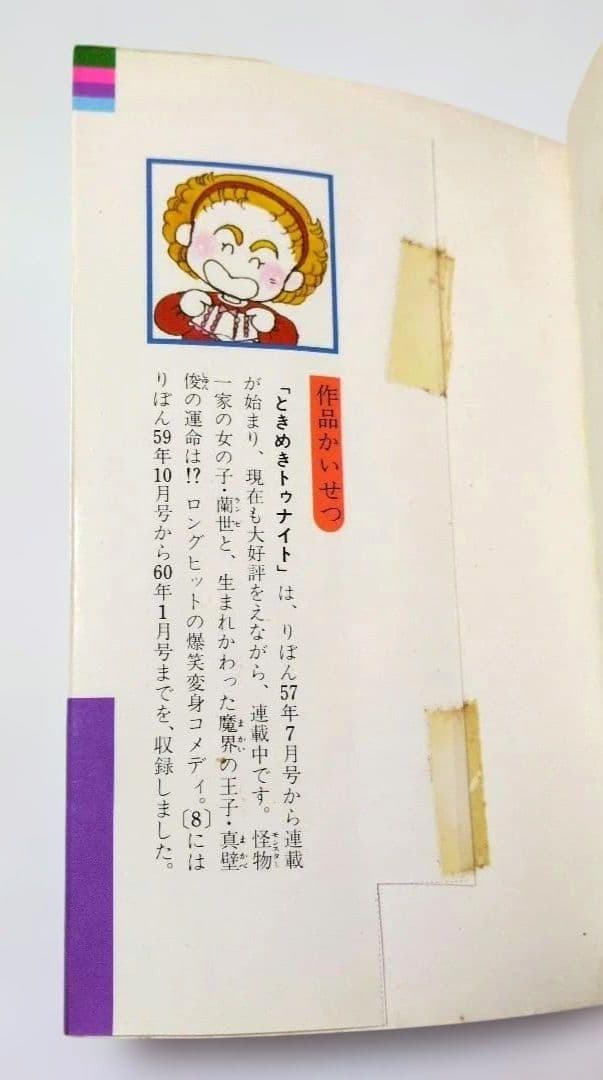 作品かいせつ
「ときめきトゥナイト」は、りぼん57年7月号から連載
が始まり、現在も大好評をえながら、連載中です。怪物
一家の女の子・蘭世と、生まれかわった魔界の王子・真壁
俊の運命は!? ロングヒットの爆笑変身コメディ。〔8〕には
りぼん59年10月号から60年1月号までを、収録しました。